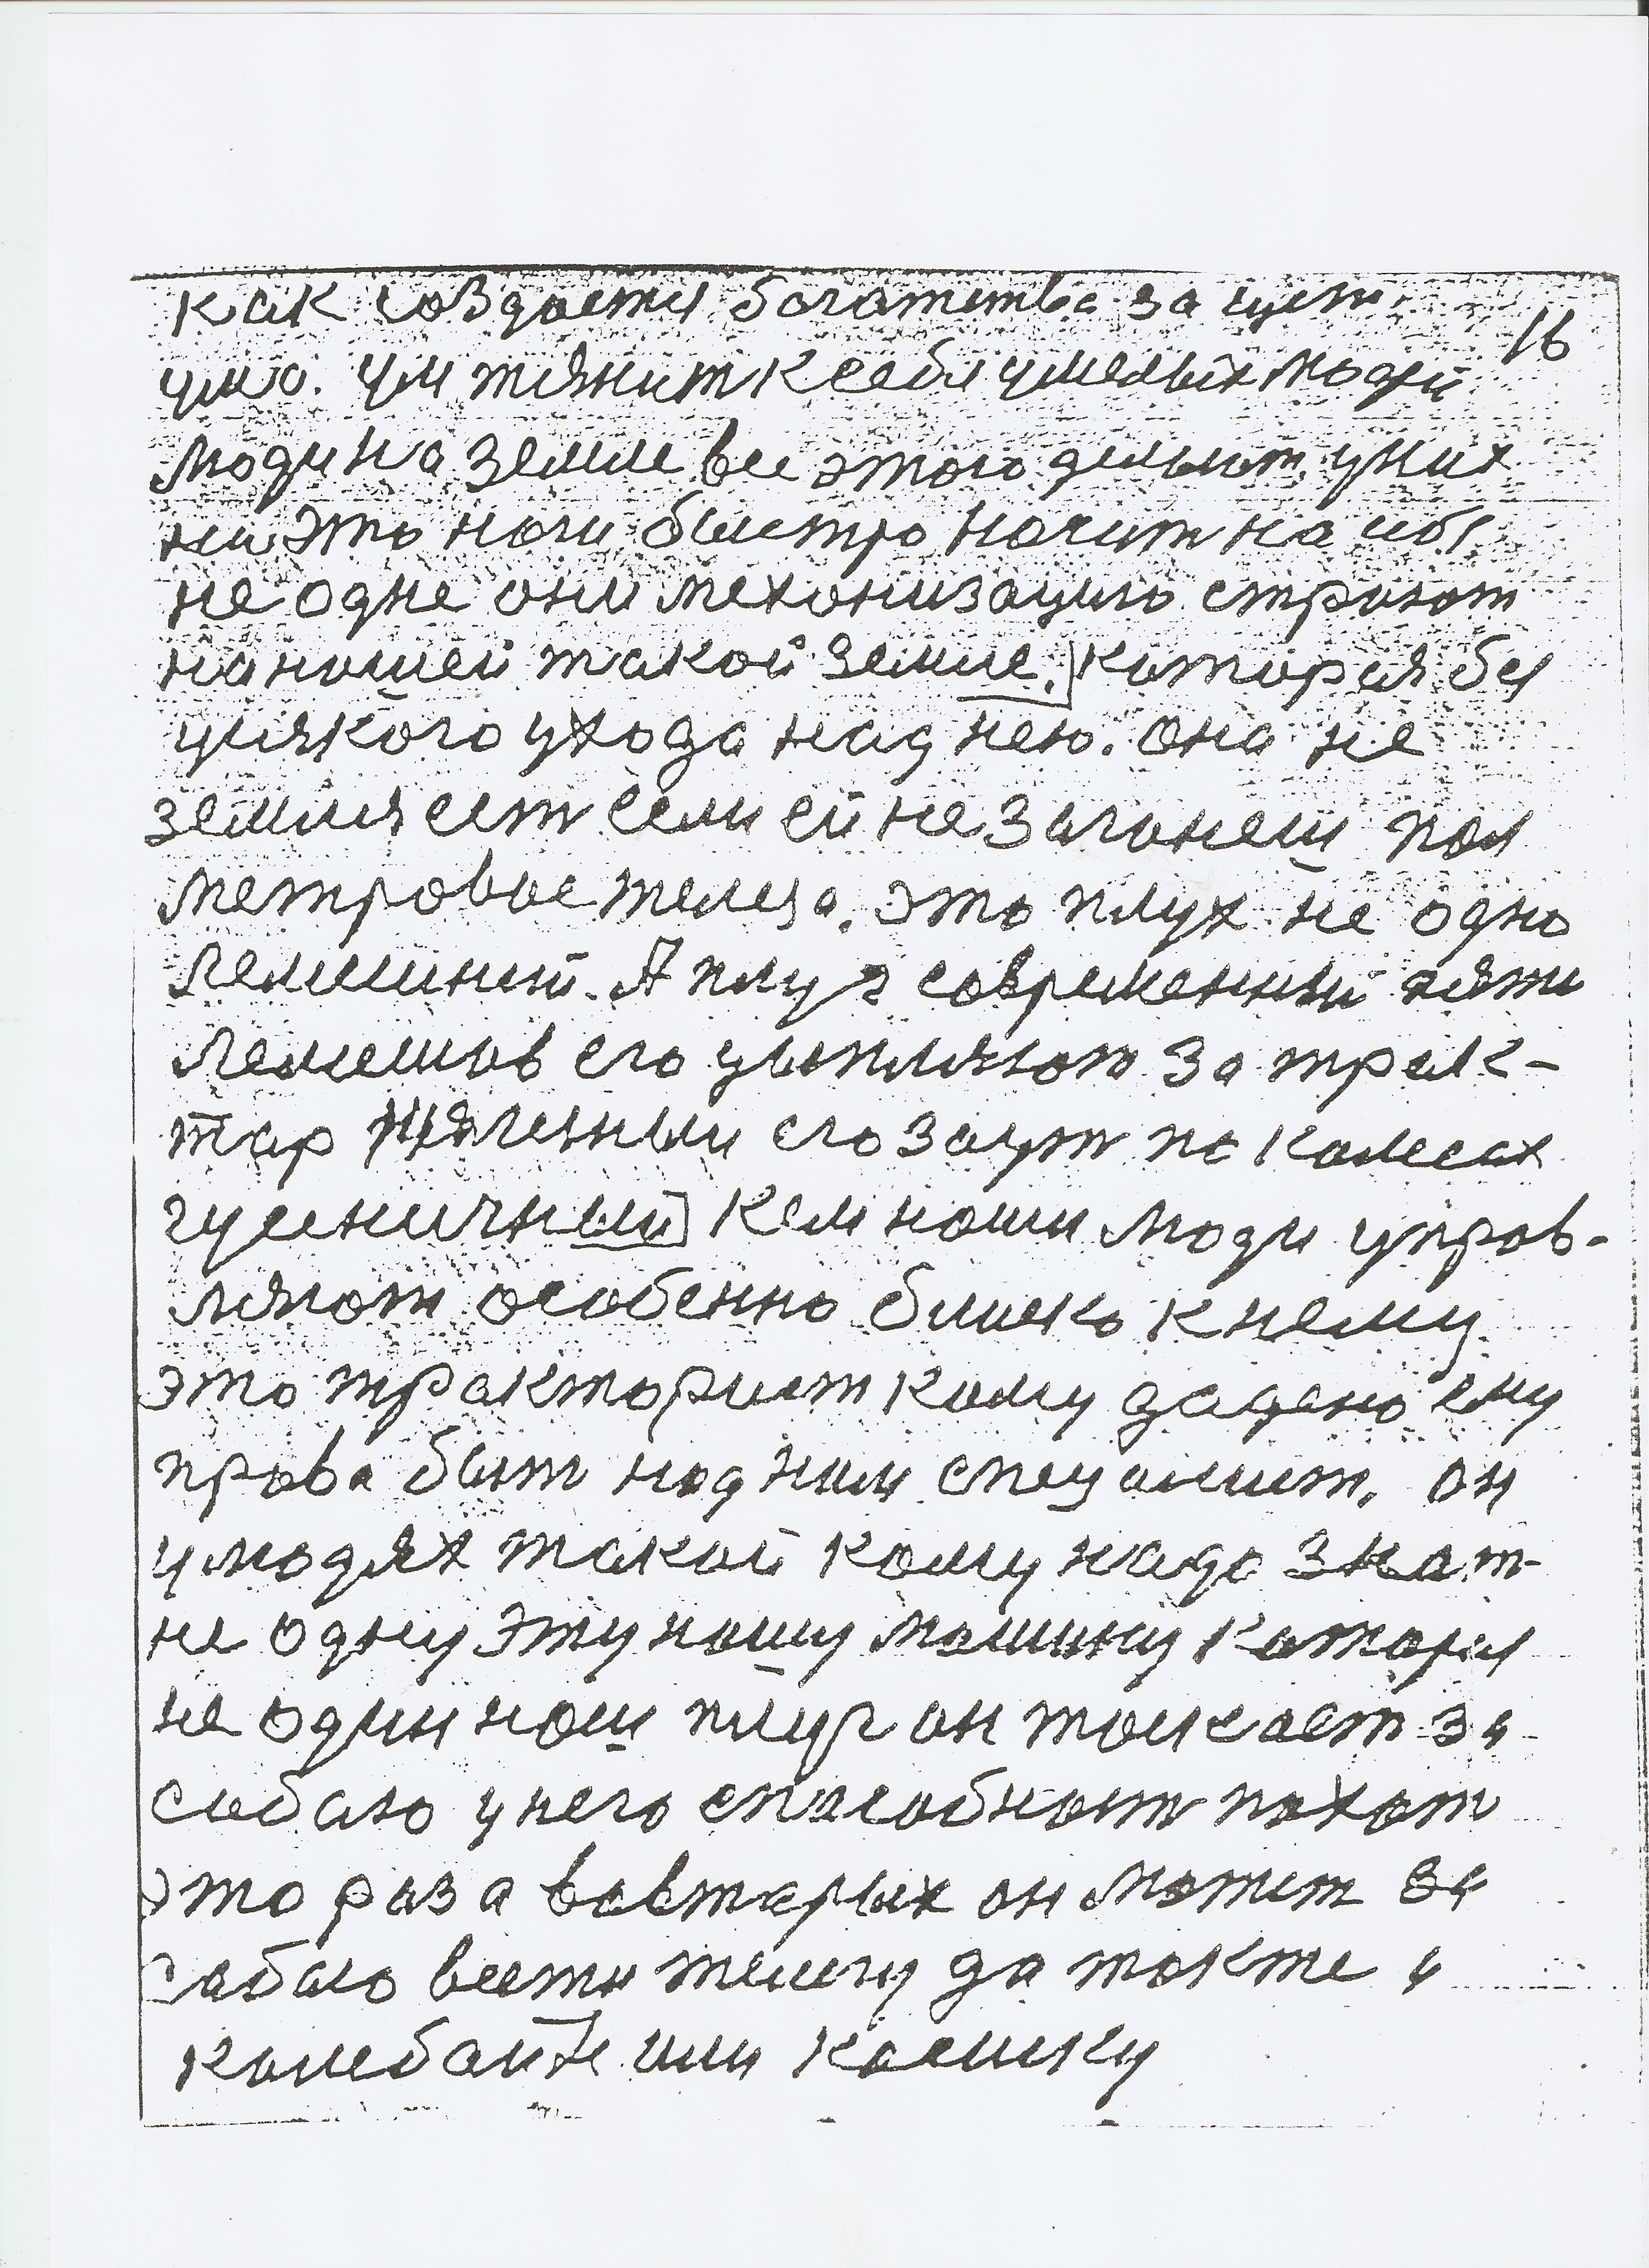 как создается богатства за счет
16
ума. Ум тянит к себе умелых людей
люди на земле все этого делают, у них
не одне они механизацию строют
на нашей такой земле, которая без
усякого ухода над нею. она не
земля ест если ей не загонеш пол
метровое железа. Это плух не одно
лемешний. А плуг современный пяти
лемешов его цыпляют за трак-
тар его зацут на колесах
гусеничный Кем наши люди управ-
ляют особенно близко к нему
это тракторист кому дадено ему
права быт над ним специалист. он
у людях такой кому надо знат
не одну эту нашу машину которая
не один наш плуг он таскает за
собаю у него способност пахат
это раз а вовтарых он можит за
сабаю вести телегу да также и
камбайн или косилку